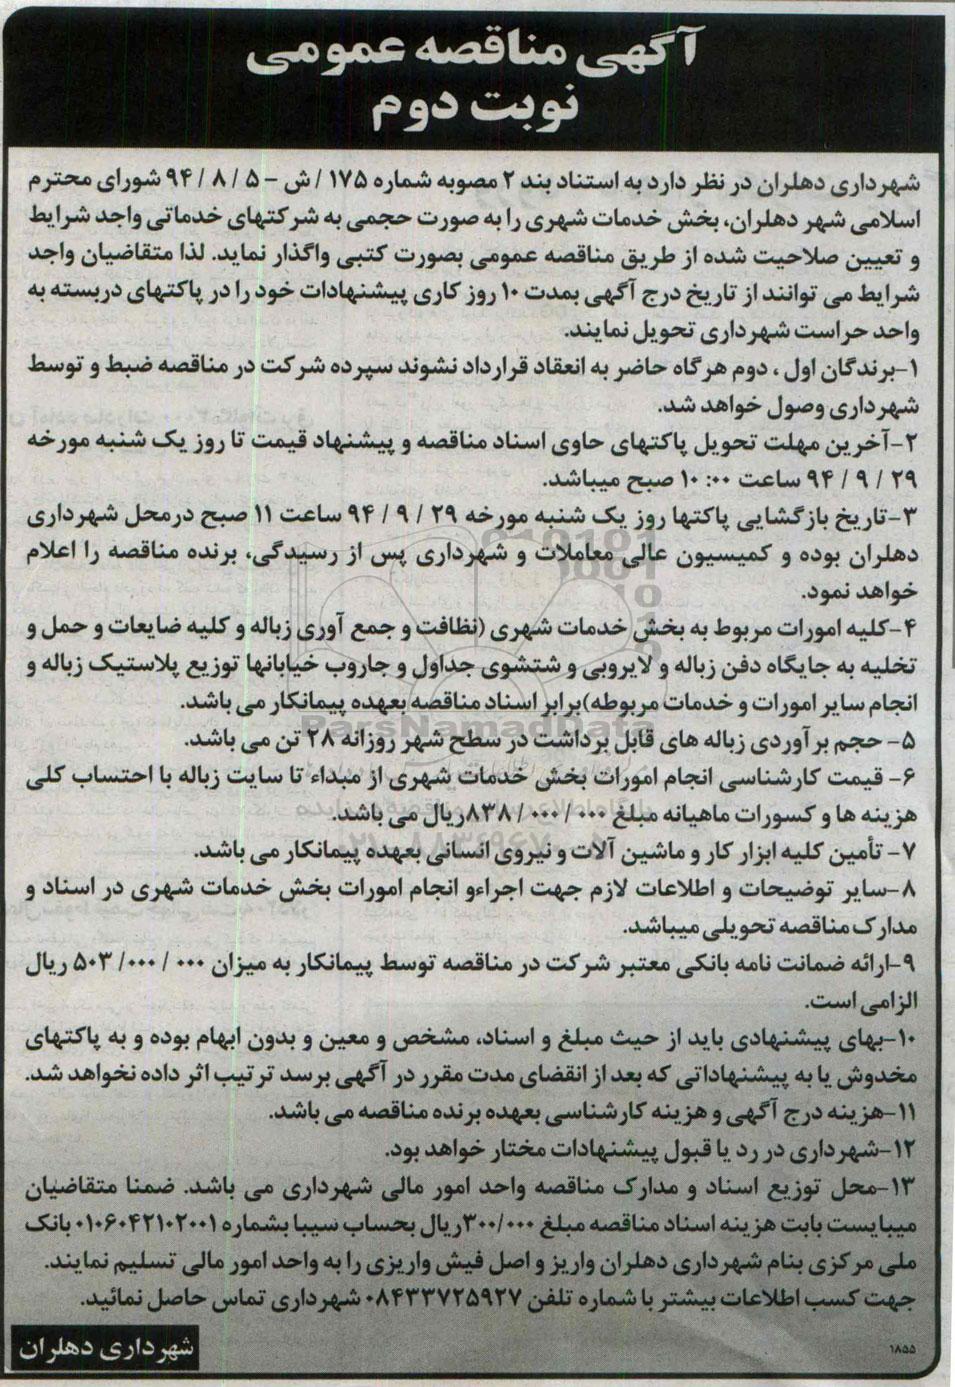 آگهی مناقصه عمومی
نوبت دوم
شهرداری دهلران در نظر دارد به استناد بند ۲ مصوبه شماره ۱۷۵ /ش – ۵ / ۸ / ۹۴ شورای محترم
اسلامی شهر دهلران، بخش خدمات شهری را به صورت حجمی به شرکتهای خدماتی واجد شرایط
و تعیین صلاحیت شده از طریق مناقصه عمومی بصورت کتبی واگذار نماید. لذا متقاضیان واجد
شرایط می توانند از تاریخ درج آگهی بمدت ۱۰ روز کاری پیشنهادات خود را در پاکتهای دربسته به
واحد حراست شهرداری تحویل نمایند.
۱-برندگان اول ، دوم هرگاه حاضر به انعقاد قرارداد نشوند سپرده شرکت در مناقصه ضبط و توسط
شهرداری وصول خواهد شد.
۲-آخرین مهلت تحویل پاکتهای حاوی اسناد مناقصه و پیشنهاد قیمت تا روز یک شنبه مورخه
۲۹ / ۹ / ۹۴ ساعت ۱۰:۰۰ صبح میباشد.
۳-تاریخ بازگشایی پاکتها روز یک شنبه مورخه ۲۹ / ۹ / ۹۴ ساعت ۱۱ صبح درمحل شهرداری
دهلران بوده و کمیسیون عالی معاملات و شهرداری پس از رسیدگی، برنده مناقصه را اعلام
خواهد نمود.
۴-کلیه امورات مربوط به بخش خدمات شهری (نظافت و جمع آوری زباله و کلیه ضایعات و حمل و
تخلیه به جایگاه دفن زباله و لایروبی و شتشوی جداول و جاروب خیابانها توزیع پلاستیک زباله و
انجام سایر امورات و خدمات مربوطه)برابر اسناد مناقصه بعهده پیمانکار می باشد.
۵- حجم برآوردی زباله های قابل برداشت در سطح شهر روزانه ۲۸ تن می باشد.
۶- قیمت کارشناسی انجام امورات بخش خدمات شهری از مبداء تا سایت زباله با احتساب کلی
هزینه ها و کسورات ماهیانه مبلغ ۰۰۰ / ۰۰۰ /۸۳۸ریال می باشد.
۷- تأمین کلیه ابزار کار و ماشین آلات و نیروی انسانی بعهده پیمانکار می باشد.
۸-سایر توضیحات و اطلاعات لازم جهت اجراءو انجام امورات بخش خدمات شهری در اسناد و
مدارک مناقصه تحویلی میباشد.
۹-ارائه ضمانت نامه بانکی معتبر شرکت در مناقصه توسط پیمانکار به میزان ۰۰۰ / ۰۰۰/ ۵۰۳ ریال
الزامی است.
۱۰-بهای پیشنهادی باید از حیث مبلغ و اسناد، مشخص و معین و بدون ابهام بوده و به پاکتهای
مخدوش یا به پیشنهاداتی که بعد از انقضای مدت مقرر در آگهی برسد ترتیب اثر داده نخواهد شد.
۱۱-هزینه درج آگهی و هزینه کارشناسی بعهده برنده مناقصه می باشد.
۱۲-شهرداری در رد یا قبول پیشنهادات مختار خواهد بود.
۱۳-محل توزیع اسناد و مدارک مناقصه واحد امور مالی شهرداری می باشد. ضمنا متقاضیان
میبایست بابت هزینه اسناد مناقصه مبلغ ۳۰۰/۰۰۰ریال بحساب سیبا بشماره ۰۱۰۶۰۴۲۱۰۲۰۰۱ بانک
ملی مرکزی بنام شهرداری دهلران واریز و اصل فیش واریزی را به واحد امور مالی تسلیم نمایند.
جهت کسب اطلاعات بیشتر با شماره تلفن ۰۸۴۳۳۷۲۵۹۲۷ شهرداری تماس حاصل نمائید.
شهرداری دهلران
۱۸۵۵
ParsNamadData